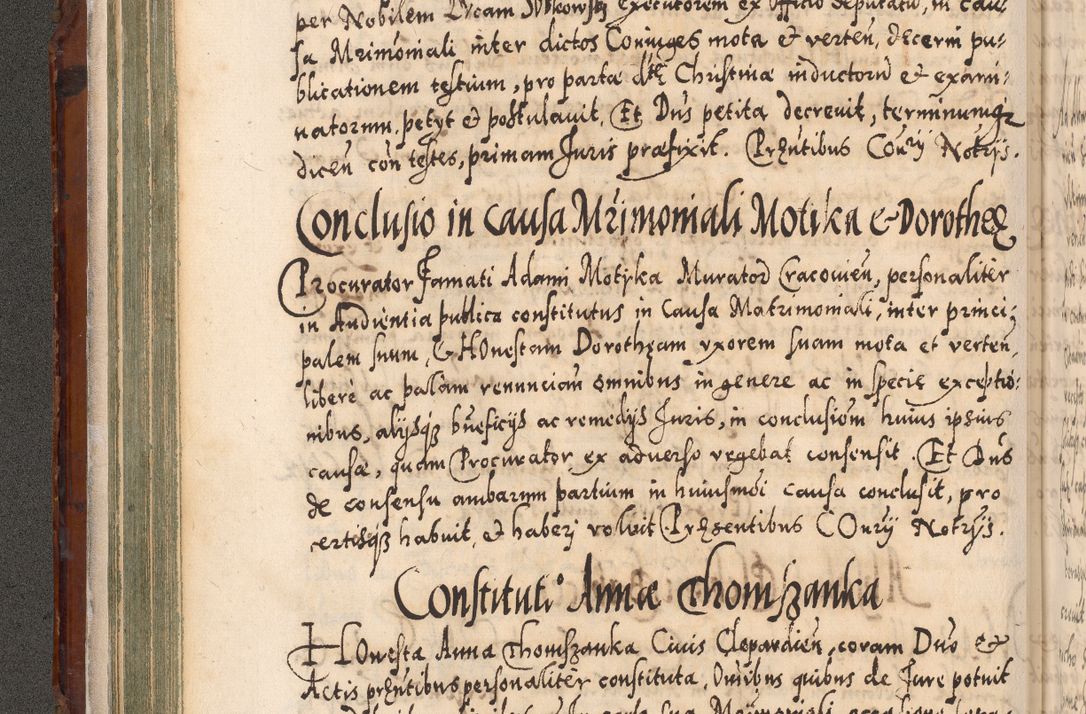 per Nobilem Lucam executorem ex Officio deputatu, in cau=
sa Mrimoniali inter dictos Coniuges mota & verteñ, decerni pu=
blicationem testium, pro parte dte Christinæ inductorũ et exami=
natorum, petyt & postulauit, Et Dñs petita decreuit, terminumq3
diceñ con testes, primam Iuris præfixit. Prñtibus Coñrij Notrijs.
Conclusio in causa Mrimoniali Motika & Dorotheę
Procurator Famati Adami Motyka Murator Cracouieñ, personaliter
in Audientia publica constitutus in Causa Matrimoniali, inter princi=
palem suum, & Honestam Dorothęam vxorem suam mota et verteñ,
liberè ac palàm renuncians omnibus in genere ac in specie exceptio=
nibus, alijsq3 bñeficijs ac remedijs Iuris, in conclusiom huius ipsius
causæ, quam Procurator ex aduerso vegebat consensit. Et Dñs
de consensu ambarum partium in huiusmoi causa conclusit, pro
certisq3 habuit, & haberj voluit Pręsentibus COnrij Notrijs.
Constituti° Annæ Thomszanka
HOnesta Anna Thomszanka Ciuis Clepardieñ, coram Dno &
Actis prñtibus personaliter constituta, Omibus quibus de Iure potuit